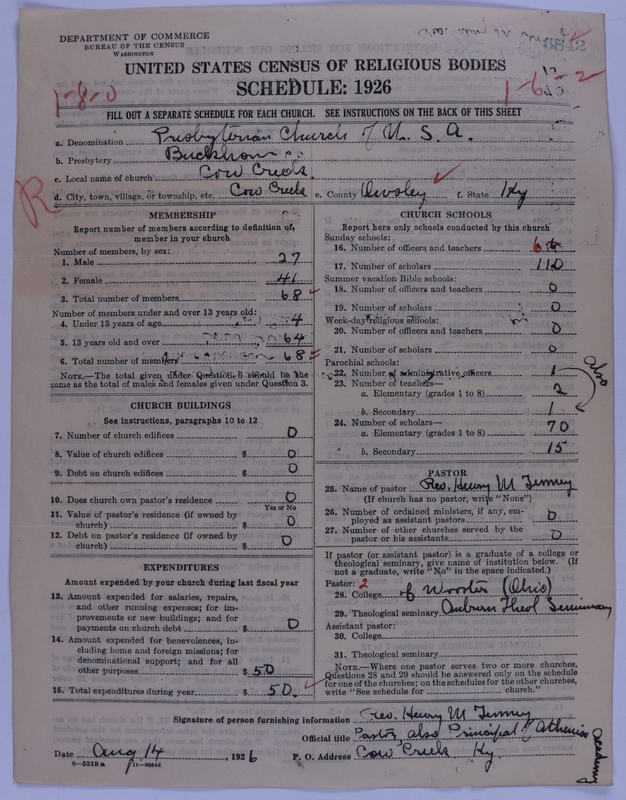 DEPARTMENT OF COMMERCE
BUREAU OF THE CENSUS
WASHINGTON
UNITED STATES CENSUS OF RELIGIOUS BODIES
SCHEDULE: 1926
1-8-0
1-6-2
FILL OUT A SEPARATE SCHEDULE FOR EACH CHURCH. SEE INSTRUCTIONS ON THE BACK OF THIS SHEET
a. Denomination Presbyterian Church of U. S. A.
b. Presbytery Buckhorn
c. Local name of church Cow Creek
d. City, town, village, or township, etc. Cow Creek e. County Owsley f. State Ky
R
MEMBERSHIP
Report number of members according to definition of member in your church
Number of members, by sex:
1. Male 27
2. Female 41
3. Total number of members 68
Number of members under and over 13 years old:
4. Under 13 years of age 4
5. 13 years old and over 64
6. Total number of members 68
NOTE.—The total given under Question 6 should be the
same as the total of males and females given under Question 3.
CHURCH BUILDINGS
See instructions, paragraphs 10 to 12
7. Number of church edifices 0
8. Value of church edifices $ 0
9. Debt on church edifices $ 0
10. Does church own pastor's residence 0
Yes or No
11. Value of pastor's residence (if owned by
church) $ 0
12. Debt on pastor's residence (if owned by
church) $ 0
EXPENDITURES
Amount expended by your church during last fiscal year
13. Amount expended for salaries, repairs,
and other running expenses; for im-
provements or new buildings; and for
payments on church debt $ 0
14. Amount expended for benevolences, in-
cluding home and foreign missions; for
denominational support; and for all
other purposes $ 50
15. Total expenditures during year $ 50.
CHURCH SCHOOLS
Report here only schools conducted by this church
Sunday schools:
16. Number of officers and teachers 6
17. Number of scholars 110
Summer vacation Bible schools:
18. Number of officers and teachers 0
19. Number of scholars 0
Week-day religious schools:
20. Number of officers and teachers 0
21. Number of scholars 0
Parochial schools:
22. Number of administrative officers 1
also
23. Number of teachers—
a. Elementary (grades 1 to 8) 2
b. Secondary 1
24. Number of scholars—
a. Elementary (grades 1 to 8) 70
b. Secondary 15
PASTOR
25. Name of pastor Rev. Henry M Tenney
(If church has no pastor, write "None")
26. Number of ordained ministers, if any, em-
ployed as assistant pastors 0
27. Number of other churches served by the
pastor or his assistants 0
If pastor (or assistant pastor) is a graduate of a college or
theological seminary, give name of institution below. (If
not a graduate, write "No" in the space indicated.)
Pastor: 2
28. College of Wooster (Ohio)
29. Theological seminary Auburn Theol Seminary
Assistant pastor:
30. College
31. Theological seminary
NOTE.—Where one pastor serves two or more churches,
Questions 28 and 29 should be answered only on the schedule
for one of the churches; on the schedules for the other churches,
write "See schedule for church."
Signature of person furnishing information Rev. Henry M Tenney
Official title Pastor, also Principal of Academy
Date Aug 14 1926 P. O. Address Cow Creek Ky